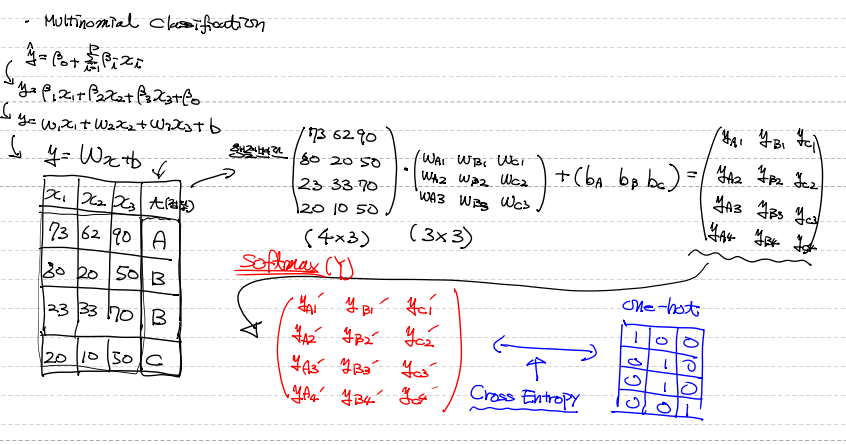 · Multinomial Classification
ŷ = β₀ + Σ βᵢxᵢ
y = β₁x₁ + β₂x₂ + β₃x₃ + β₀
y = w₁x₁ + w₂x₂ + w₃x₃ + b
y = Wx + b
x₁ x₂ x₃
73 62 90 A
80 20 50 B
23 33 70 B
20 10 50 C
73 62 90
80 20 50
23 33 70
20 10 50
(4×3)
·
wA1 wB1 wC1
wA2 wB2 wC2
wA3 wB3 wC3
(3×3)
+ (bA bB bC) =
yA1 yB1 yC1
yA2 yB2 yC2
yA3 yB3 yC3
yA4 yB4 yC4
Softmax(Y)
yA1′ yB1′ yC1′
yA2′ yB2′ yC2′
yA3′ yB3′ yC3′
yA4′ yB4′ yC4′
Cross Entropy
one-hot
1 0 0
0 1 0
0 1 0
0 0 1